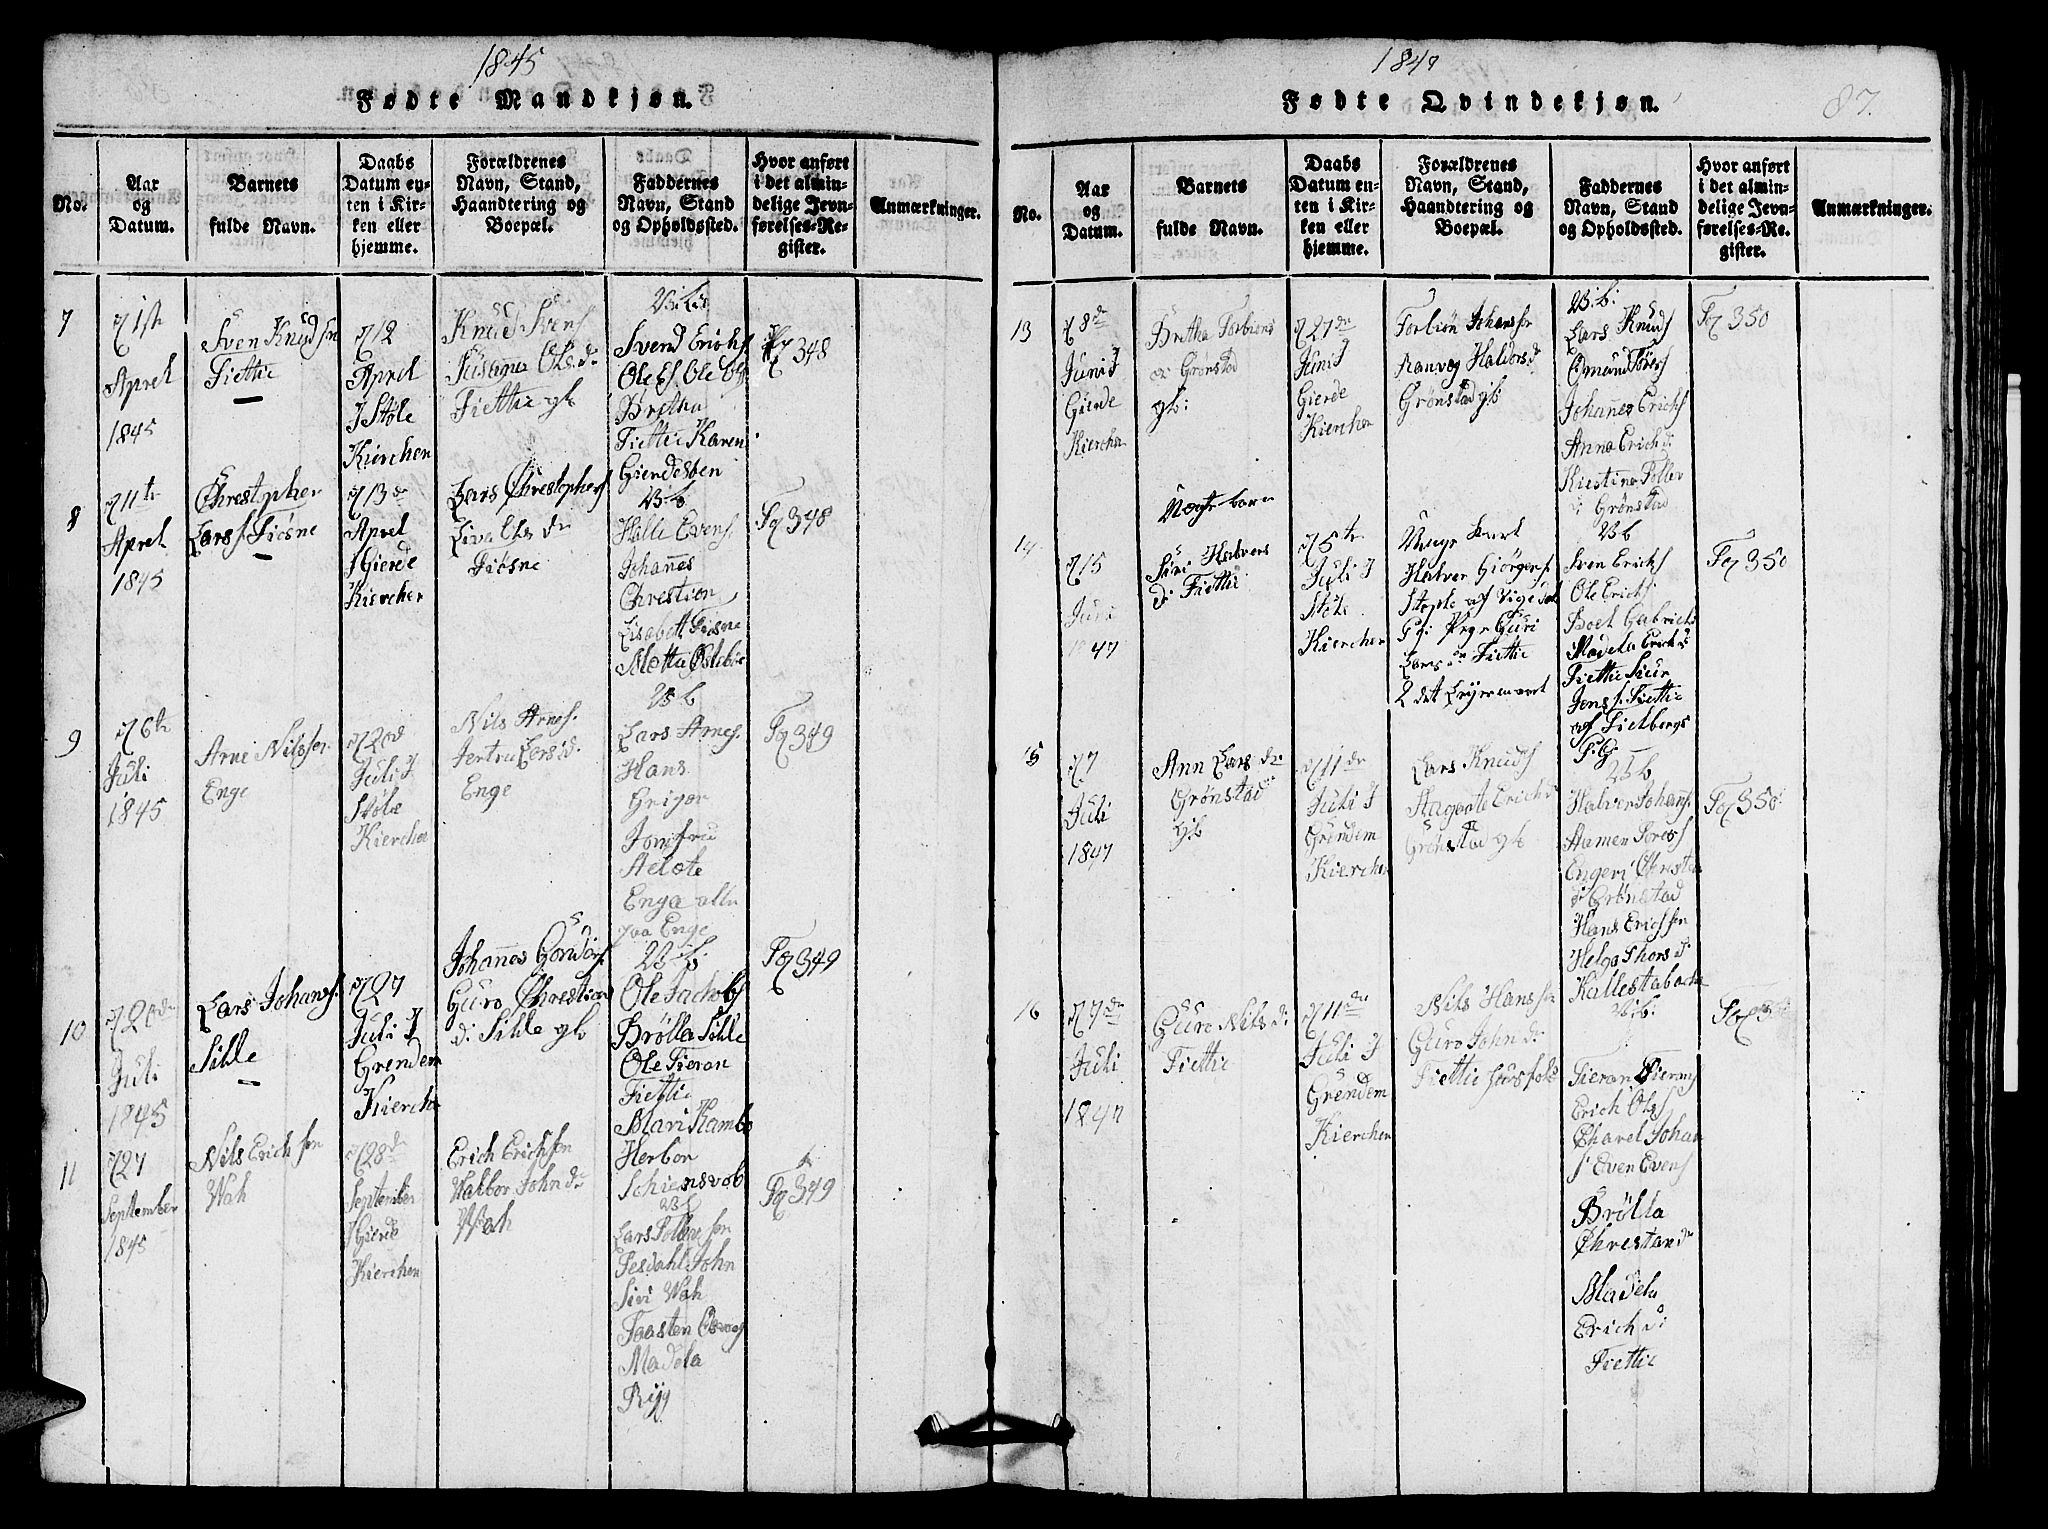 1845
Fødte Mandkjøn.
No.
Aar
og
Datum.
Barnets
fulde Navn.
Daabs
Datum en-
ten i Kir-
ken eller
hjemme.
Forældrenes
Navn, Stand,
Haandtering og
Boepæl.
Faddernes
Navn, Stand
og Opholdssted.
Hvor anført
i det almin-
delige Jevn-
førelses-Re-
gister.
Anmærkninger.
7
1ste
Aprel
1845
Sven Knudsøn
Fiettie
12
Aprel
I Støle
Kierchen
Knud Svens
Susanna Ols dr
Fiettie gb
Svend Erichs
Ole Es. Ole Ols
Bretha
Fiettie Karen
Giendesben
Fg 348
8
11te
Aprel
1845
Chrestopher
Lars s. Fiøsne
13de
Aprel
I Gierde
Kiercher
Lars Chrestophers
Liva Ols dr
Fiøsne
V. b
Halle Evens.
Johannes
Chrestion
Lisabett Fiøsne
Metta Østebø
Fg 348
9
6te
Juli
1845
Arne Nilssen
Enge
20d
Juli I
Støle
Kierchen
Nils Arnes.
Jertru Larsd.
Enge
V b
Lars Arnes.
Hans
Griger
Jomfru
Aelote
Enga alle
paa Enge
Fg 349
10
20de
Juli
1845
Lars Johans.
Sille
27
Juli I
Grendem
Kierche
Johannes Gøndørs
Guro Chrestian
d: Sille gb
V. b.
Ole Jachobs
Brølla Sille
Ole Fieran
Fiettie
Mari Kambe
Herbor
Schiensvob
Fg 349
11
27
September
1845
Nils Erichsøn
Wah
28de
September
I Gierde
Kierchen
Erich Erichsøn
Walbor John dr
Wah
V b
Lars Tollevsøn
Tesdahl John
Sivi Wah
Taasten
Madela
Rygg
Fg 349
1847
Fødte Qvindekjøn.
87.
No.
Aar
og
Datum.
Barnets
fulde Navn.
Daabs
Datum en-
ten i Kir-
ken eller
hjemme.
Forældrenes
Navn, Stand,
Haandtering og
Boepæl.
Faddernes
Navn, Stand
og Opholdssted.
Hvor anført
i det almin-
delige Jevn-
førelses-Re-
gister.
Anmærkninger.
13
8de
Juni I
Gierde
Kierchen
Bretha Torbiøns
dr Grønstad
gb:
27de
Juni I
Gierde
Kiercher
Torbiøn Johansøn
Ranveg Haldors dr
Grønstad gb
V. b:
Lars Knuds
Omund Tøres
Johannes Erichs
Anna Erich dr
Kirstina Toller
d: Grønstad
Fg 350
14
15
Juni
47
Uegte barn
Siri Halvors
d: Fiettie
5te
Juli I
Støle
Kiercher
Unge Kart
Halver Giørgens.
Stople af Vigedal
Pige Guri
Lars dr Fiettie
2 det Leyermaal
V b
Sven Erichs
Ole Erichs
Boel Gabriels
Madela Erichs d
Fiettie Siur
Jens s. Fiettie
af Fielbergs
P. G.
Fg 350
15
7
Juli
1847
Ann Lars dr
Grønstad
gb
11de
Juli I
Grendem
Kiercher
Lars Knuds
Aagaate Erich dr
Grønstad gb
V b
Halver Johans.
Aamen Tores
Engeri Chresten
d: Grønstad
Hans Erichsøn
Helga Thors d:
Kallestabacka
Fg 350
16
7de
Juli
1847
Guro Nils d:
Fiettie
11de
Juli I
Grendem
Kiercher
Nils Hanssøn
Guro John dr
Fiettie Husfolk
V. b.
Fieran Fierans
Erich Ols
Charel Johan
s. Even Evens
Brølla
Chrestan dr
Madela
Erich d:
Fiettie